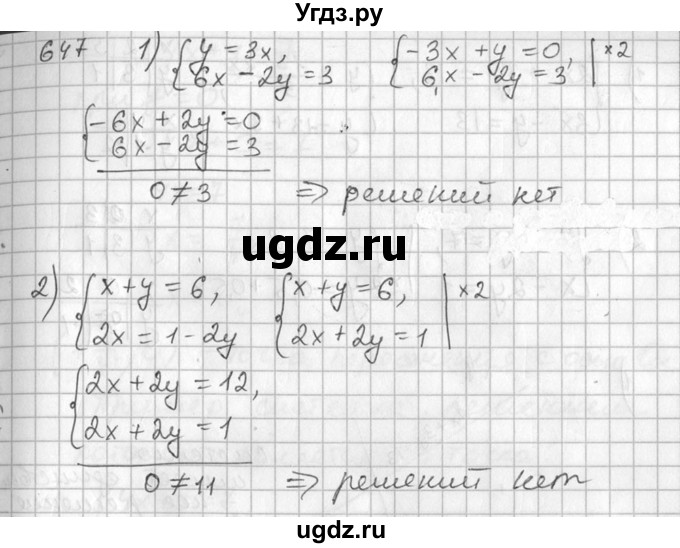 Угдз.ру
647 1) { y = 3x, { -3x + y = 0, | ×2
6x - 2y = 3 6x - 2y = 3
{ -6x + 2y = 0
6x - 2y = 3
0 ≠ 3 => решений нет
ugdz.ru
2) { x + y = 6, { x + y = 6, | ×2
2x = 1 - 2y 2x + 2y = 1
{ 2x + 2y = 12,
2x + 2y = 1
0 ≠ 11 => решений нет
ugdz.ru